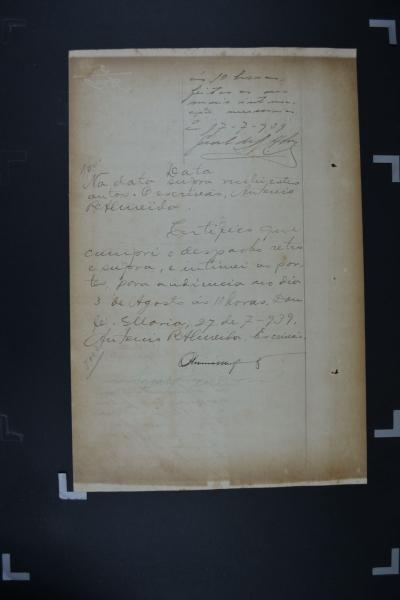 ás 10 horas,
feitas as
2 27-7-939
Data
Na data supra recebi estes
autos. O escrivão, Antonio
R. Almeida.
Certifico que
cumpri o despacho retro
e supra, e intimei as par-
tes, para audiencia no dia
3 de Agosto ás 10 horas. Dou
fé. S. Maria, 27 de 7-939.
Antonio R. Almeida. Escrivão